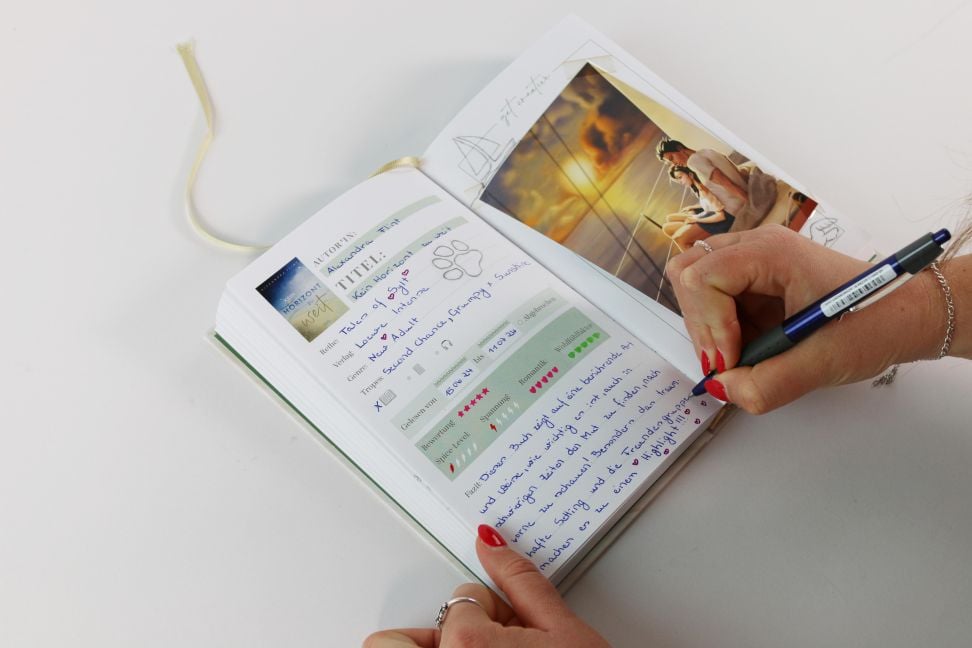 AUTOR*IN:
Alexandra Flint
TITEL:
Kein Horizont zu weit
HORIZONT
weit
Reihe: Tales of Sylt
Verlag: Loewe Intense
Genre: New Adult
Tropes: Second Chance, Grumpy x Sunshine
X
Gelesen von 15.06.24 bis 19.07.24 Abgebrochen
Bewertung Romantik Wohlfühlfaktor
Spice-Level Spannung
Fazit: Dieses Buch zeigt auf eine berührende Art
und Weise, wie wichtig es ist, auch in
schwierigen Zeiten den Mut zu finden, nach
vorne zu schauen! Besonders das traum-
hafte Setting und die Freundesgruppe
machen es zu einem Highlight!!!
get creative